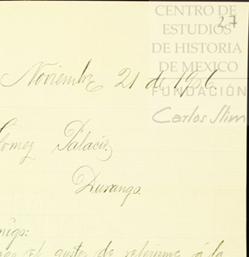 CENTRO DE
ESTUDIOS
DE HISTORIA
DE MEXICO
FUNDACIÓN
Carlos Slim
27
Noviembre 21 de
Gomez Palacio,
Durango
migo:
el gusto de referirme á la